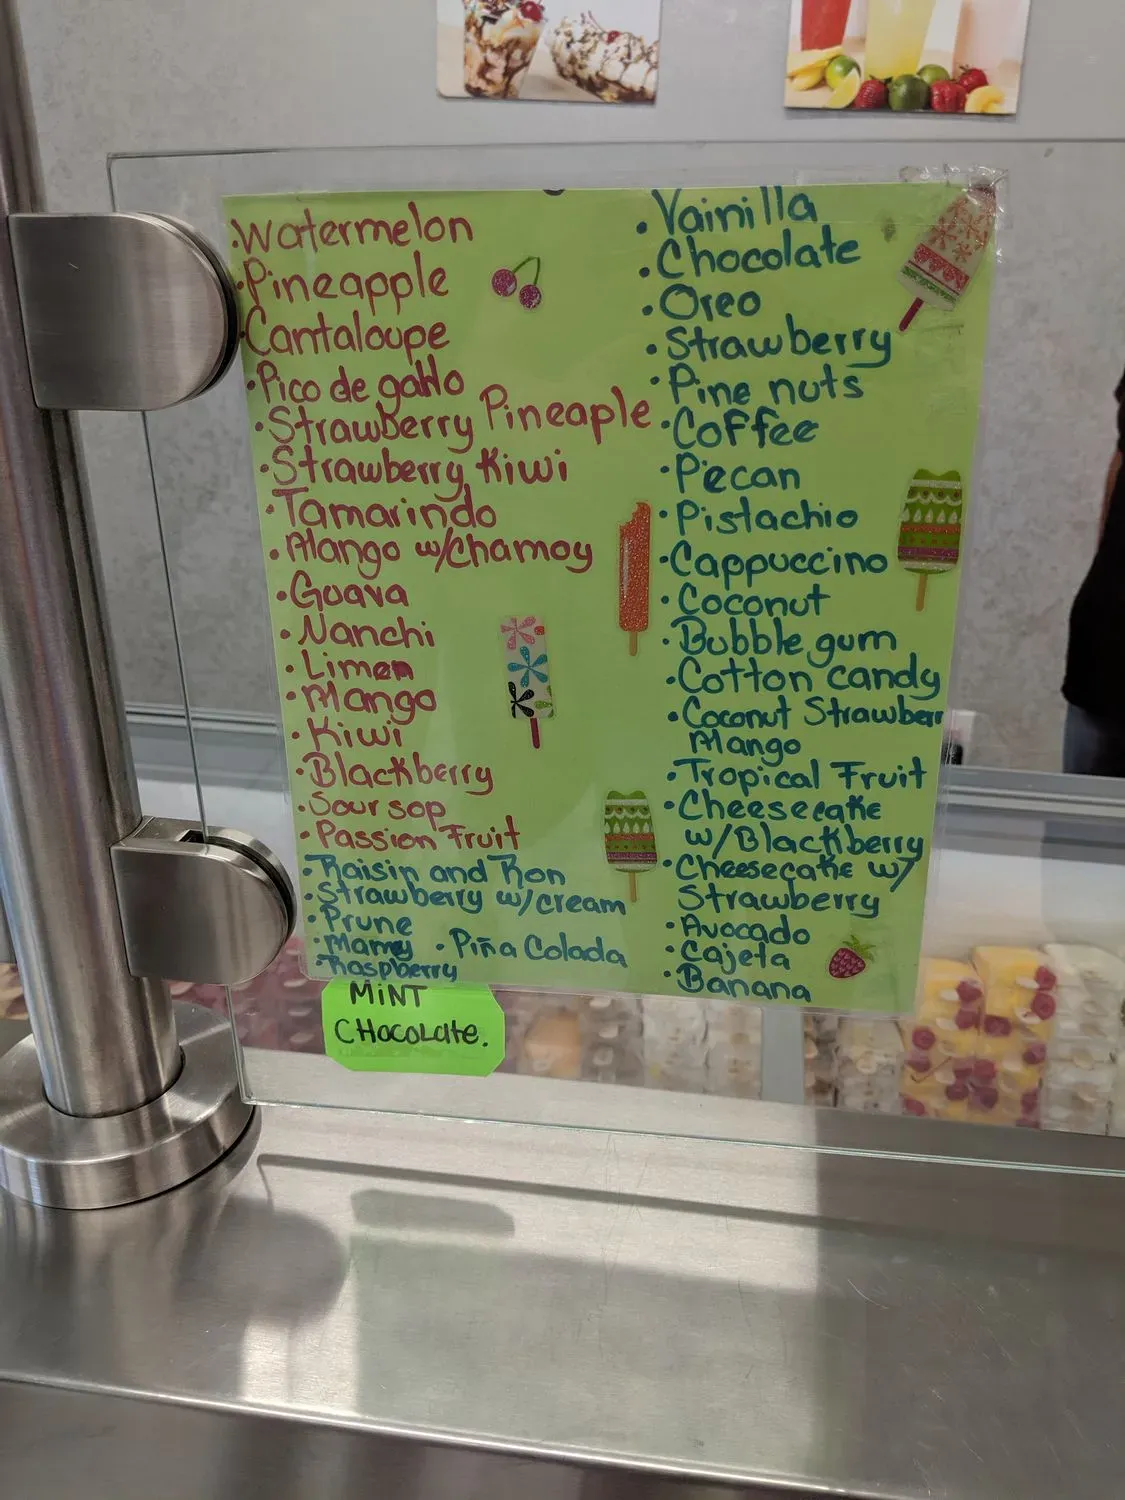 ·Watermelon
·Pineapple
·Cantaloupe
·Pico de gallo
·Strawberry Pineaple
·Strawberry Kiwi
·Tamarindo
·Mango w/Chamoy
·Guava
·Nanchi
·Limon
·Mango
·Kiwi
·Blackberry
·Sour sop
·Passion Fruit
·Raisin and Ron
·Strawberry w/cream
·Prune
·Mamey ·Piña Colada
·Raspberry
MiNT
CHocoLate.
·Vainilla
·Chocolate
·Oreo
·Strawberry
·Pine nuts
·Coffee
·Pecan
·Pistachio
·Cappuccino
·Coconut
·Bubble gum
·Cotton candy
·Coconut Strawberr
Mango
·Tropical Fruit
·Cheesecake
w/Blackberry
·Cheesecake w/
Strawberry
·Avocado
·Cajeta
·Banana